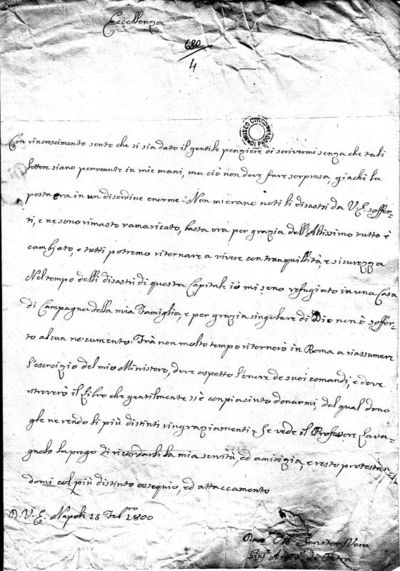 Eccellenza
680
4
Con rincrescimento sento che si sia dato il gentile penziere di scrivermi senza che tali
lettere siano pervenute in mie mani, ma ciò non deve fare sorpresa, giachè la
posta era in un disordine enorme - Non mi erano noti li disastri da V.E. soffer-
ti, e ne sono rimasto ramaricato, basta ora per grazia dell'Altissimo tutto è
cambjato, e tutti potremo ritornare a vivere con tranquillità, e sicurezza
Nel tempo delli disastri di questa Capitale io mi sono refugiato in una Casa
di Campagna della mia Famiglia, e per grazia singulare di Dio non è soffer-
to alcun nocumento. Frà non molto tempo ritornerò in Roma a riassumere
l'esercizio del mio Ministero, dove aspetto l'onore de suoi comandi, e dove
troverò il Libro che gentilmente si è compiaciuto donarmi, del qual dono
gle ne rendo li più distinti ringraziamenti. Se vede il Professore Cava-
gnolo la prego di ricordarli la mia servitù, ed amicizia, e resto protestan-
domi col più distinto ossequio, ed attaccamento
D. V. E. Napoli 15 Feb.ro 1800
Servitor Vero